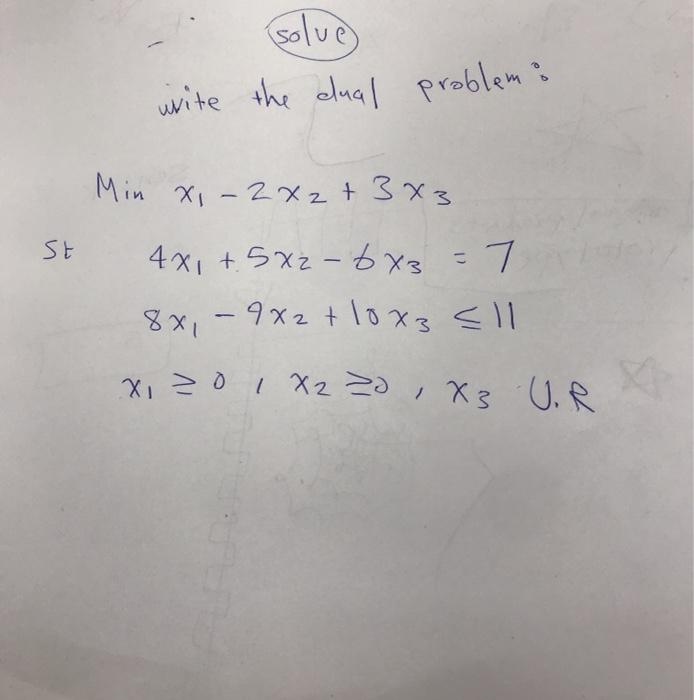 solve
write the dual problem:
Min x₁ - 2x₂ + 3x₃
St 4x₁ + 5x₂ - 6x₃ = 7
8x₁ - 9x₂ + 10x₃ ≤ 11
x₁ ≥ 0, x₂ ≥ 0, x₃ U.R